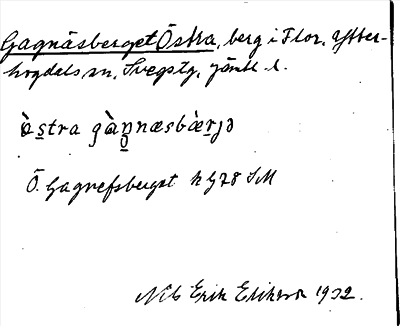 Gagnäsberget Östra, berg i Flor, Ytter-
hogdals sn, Svegs tg, Jämtl. l.
òs̲tra gàn̲næsbæ̀r̲jə
Ö. Gagnefsberget h G78 SM
Nils Erik Erikson 1932.